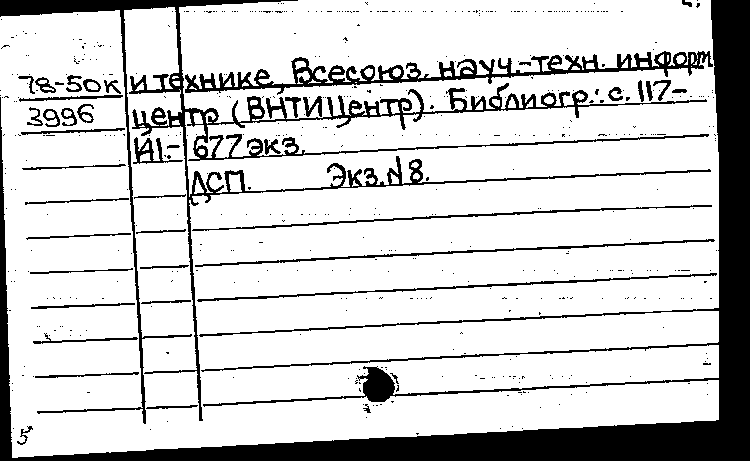 78-50к и технике, Всесоюз. науч.-техн. информ
3996 центр (ВНТИЦентр). Библиогр.: с. 117-
141.- 677 экз.
ДСП. Экз.N8.
5